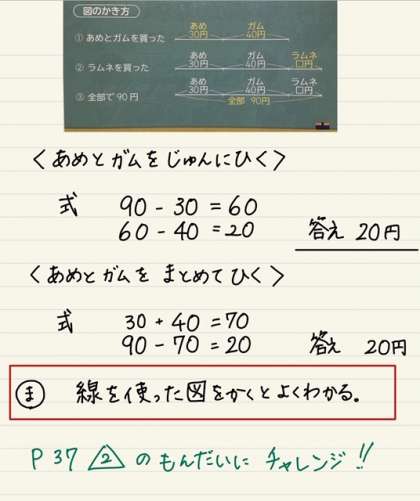 図のかき方
① あめとガムを買った
あめ 30円 ガム 40円
② ラムネを買った
あめ 30円 ガム 40円 ラムネ □円
③ 全部で90円
あめ 30円 ガム 40円 ラムネ □円
全部 90円
〈あめとガムをじゅんにひく〉
式 90 - 30 = 60
60 - 40 = 20 答え 20円
〈あめとガムをまとめてひく〉
式 30 + 40 = 70
90 - 70 = 20 答え 20円
ま 線を使った図をかくとよくわかる。
P37 2 のもんだいにチャレンジ!!